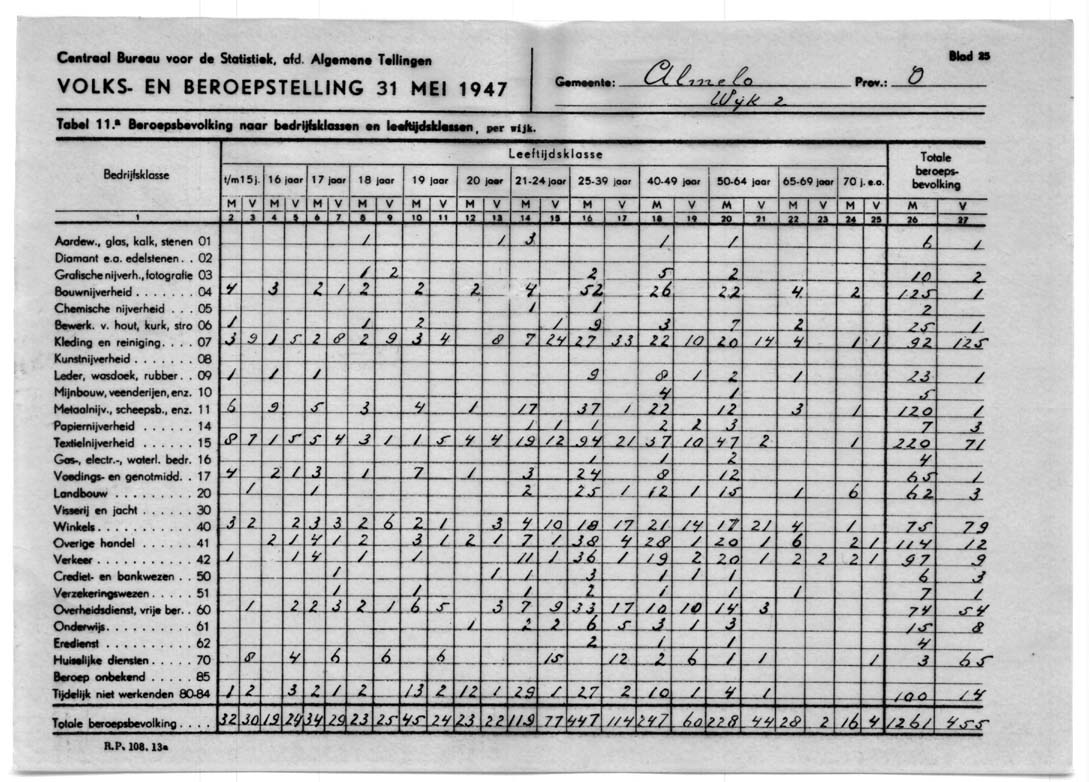 Centraal Bureau voor de Statistiek, afd. Algemene Tellingen
Blad 25
VOLKS- EN BEROEPSTELLING 31 MEI 1947
Gemeente: Almelo Prov.: O
Wijk 2
Tabel 11.ª Beroepsbevolking naar bedrijfsklassen en leeftijdsklassen, per wijk.
Bedrijfsklasse Leeftijdsklasse Totale beroeps-bevolking
t/m 15 j. 16 jaar 17 jaar 18 jaar 19 jaar 20 jaar 21-24 jaar 25-39 jaar 40-49 jaar 50-64 jaar 65-69 jaar 70 j. e.o.
M V M V M V M V M V M V M V M V M V M V M V M V M V
1 2 3 4 5 6 7 8 9 10 11 12 13 14 15 16 17 18 19 20 21 22 23 24 25 26 27
Aardew., glas, kalk, stenen 01 1 1 3 1 1 6 1
Diamant e.a. edelstenen . . 02
Grafische nijverh., fotografie 03 1 2 2 5 2 10 2
Bouwnijverheid . . . . . . . 04 4 3 2 1 2 2 2 4 52 26 22 4 2 125 1
Chemische nijverheid . . . 05 1 1 2
Bewerk. v. hout, kurk, stro 06 1 1 2 1 9 3 7 2 25 1
Kleding en reiniging. . . . 07 3 9 1 5 2 8 2 9 3 4 8 7 24 27 33 22 10 20 14 4 1 1 92 125
Kunstnijverheid . . . . . . 08
Leder, wasdoek, rubber. . 09 1 1 1 9 8 1 2 1 23 1
Mijnbouw, veenderijen, enz. 10 4 1 5
Metaalnijv., scheepsb., enz. 11 6 9 5 3 4 1 17 37 1 22 12 3 1 120 1
Papiernijverheid . . . . . . 14 1 1 1 2 2 3 7 3
Textielnijverheid . . . . . . 15 8 7 1 5 5 4 3 1 1 5 4 4 19 12 94 21 37 10 47 2 1 220 71
Gas-, electr.-, waterl. bedr. 16 1 1 2 4
Voedings- en genotmidd. . 17 4 2 1 3 1 7 1 3 24 8 12 65 1
Landbouw . . . . . . . . . 20 1 1 2 25 1 12 1 15 1 6 62 3
Visserij en jacht . . . . . . 30
Winkels . . . . . . . . . . 40 3 2 2 3 3 2 6 2 1 3 4 10 18 17 21 14 17 21 4 1 75 79
Overige handel . . . . . . 41 2 1 4 1 2 3 1 2 1 7 1 38 4 28 1 20 1 6 2 1 114 12
Verkeer . . . . . . . . . . 42 1 1 4 1 1 11 1 36 1 19 2 20 1 2 2 2 1 97 9
Crediet- en bankwezen . . 50 1 1 1 3 1 1 1 6 3
Verzekeringswezen . . . . 51 1 1 1 2 1 1 1 7 1
Overheidsdienst, vrije ber. . 60 1 2 2 3 2 1 6 5 3 7 9 33 17 10 10 14 3 74 54
Onderwijs. . . . . . . . . . 61 1 2 2 6 5 3 1 3 15 8
Eredienst . . . . . . . . . 62 2 1 1 4
Huiselijke diensten . . . . 70 8 4 6 6 6 15 12 2 6 1 1 1 3 65
Beroep onbekend . . . . . 85
Tijdelijk niet werkenden 80-84 1 2 3 2 1 2 13 2 12 1 29 1 27 2 10 1 4 1 100 14
Totale beroepsbevolking . . . . 32 30 19 24 34 29 23 25 45 24 23 22 119 77 447 114 247 60 228 44 28 2 16 4 1261 455
R.P. 108. 13a